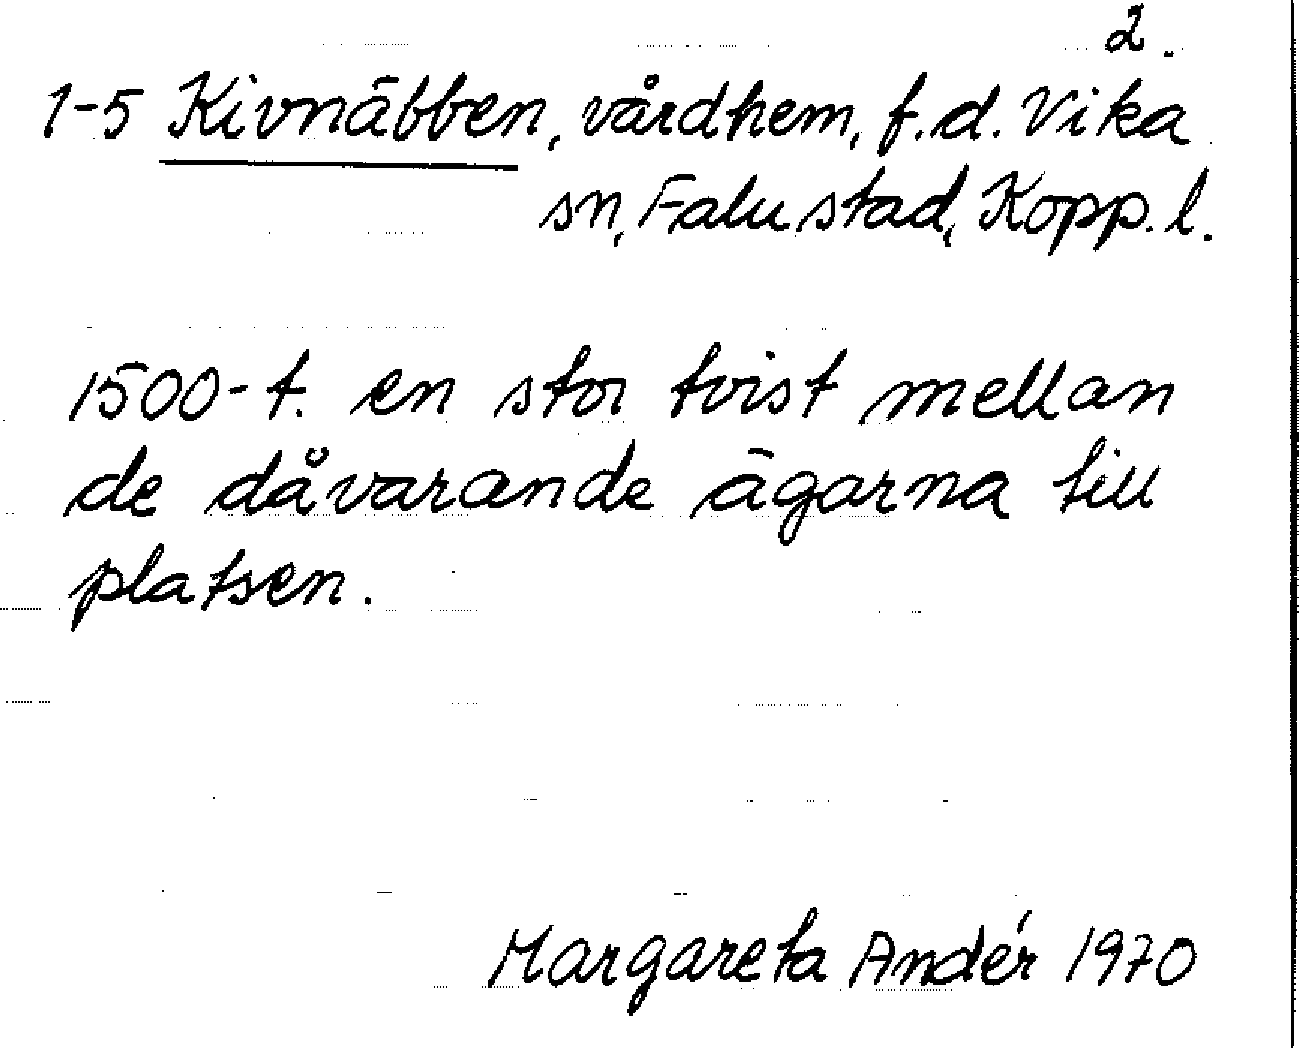 2.
1-5 Kivnäbben, vårdhem, f.d. Vika
sn, Falu stad, Kopp. l.
1500-t. en stor tvist mellan
de dåvarande ägarna till
platsen.
Margareta Andér 1970